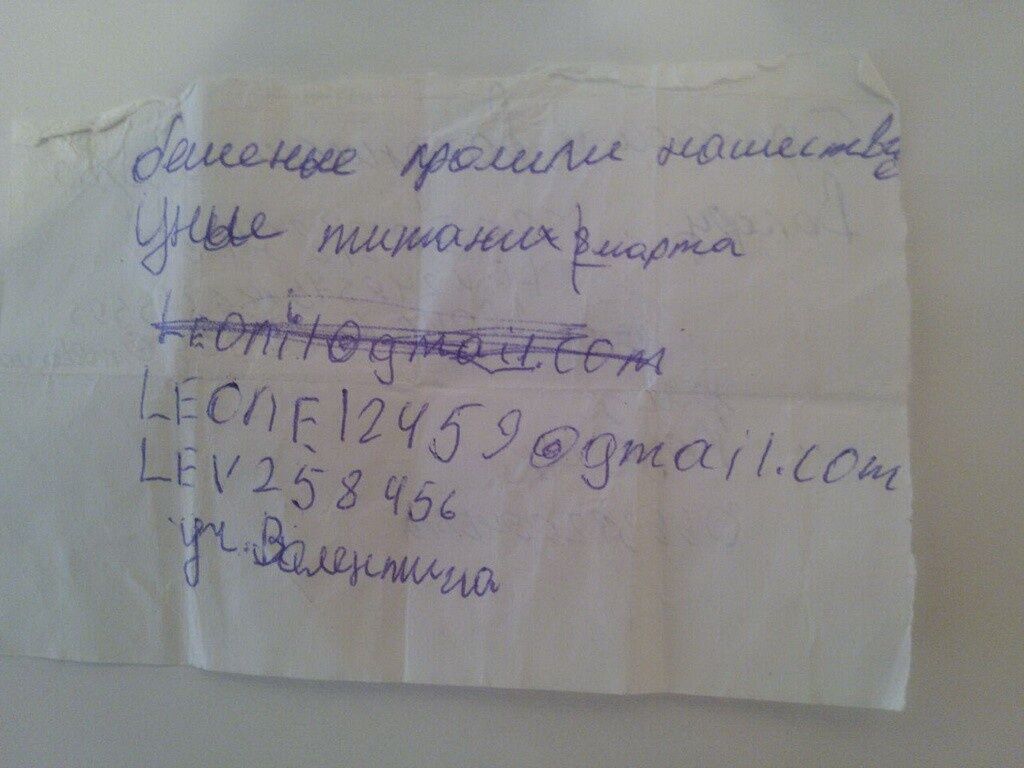 бешеные кролики нашествие
Уные титаных 8 марта
LEONil@gmail.com
LEONE12459@gmail.com
LEV258456
уч. Валентина